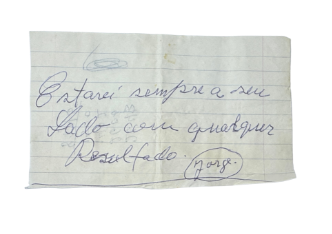 Estarei sempre a seu
Lado com qualquer
Resultado.
Jorge.